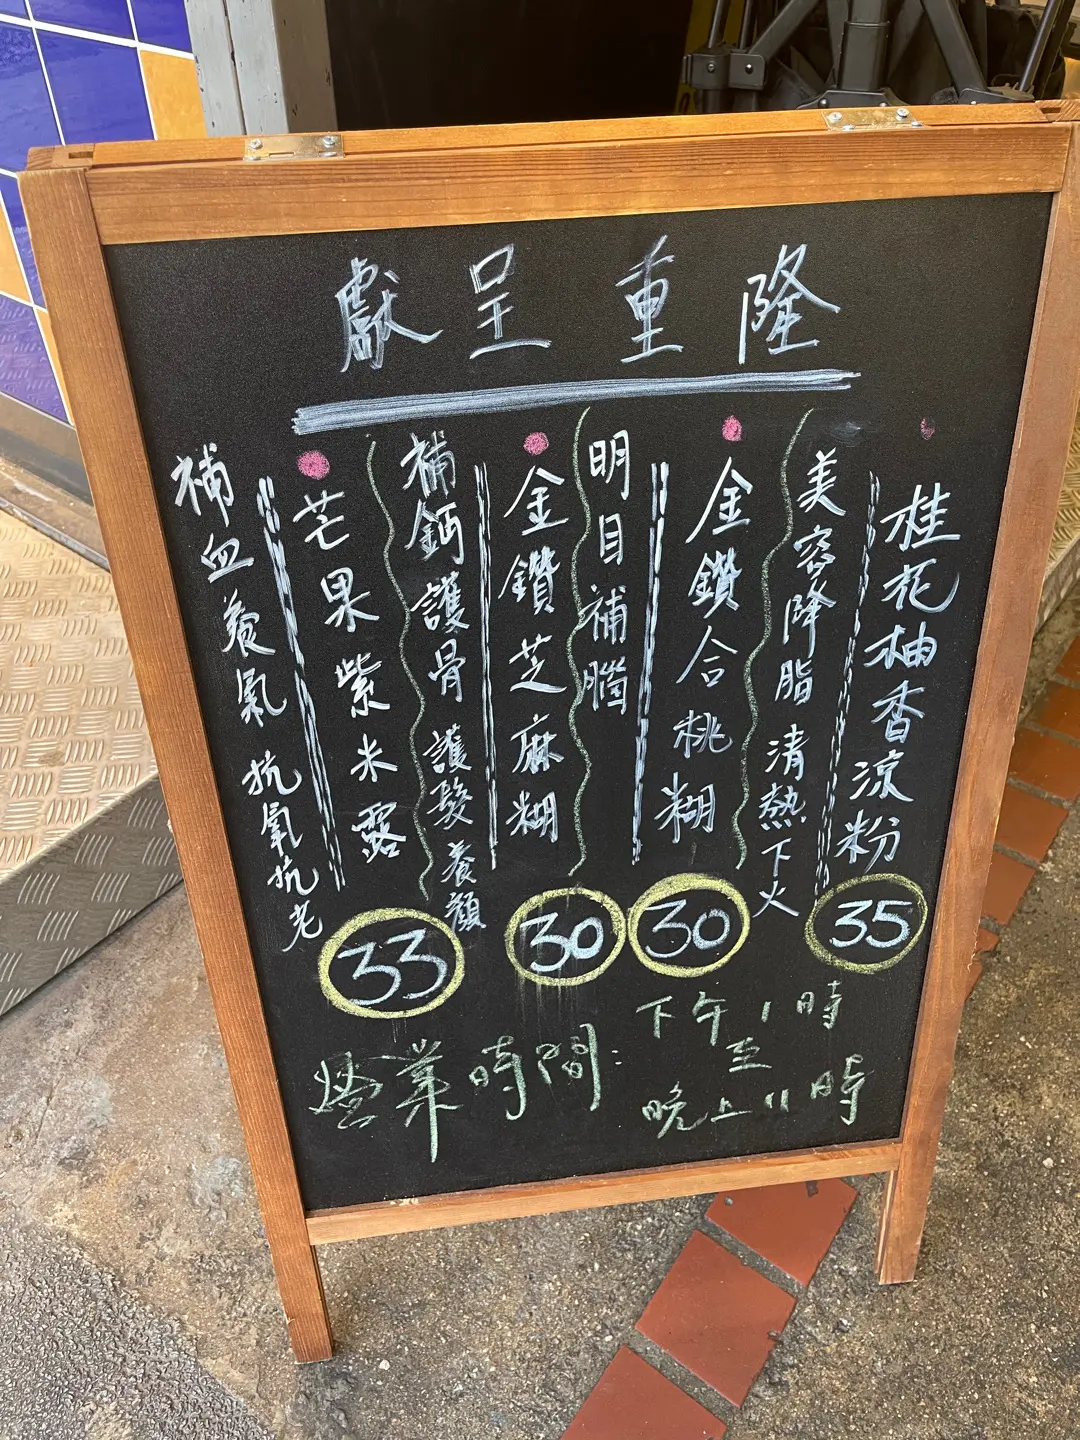 隆重呈獻
桂花柚香涼粉
35
美容降脂 清熱下火
金鑽合桃糊
30
明目補腦
金鑽芝麻糊
30
補鈣護骨 護髮 養顏
芒果紫米露
33
補血養氣 抗氧抗老
營業時間:
下午1時
至
晚上11時